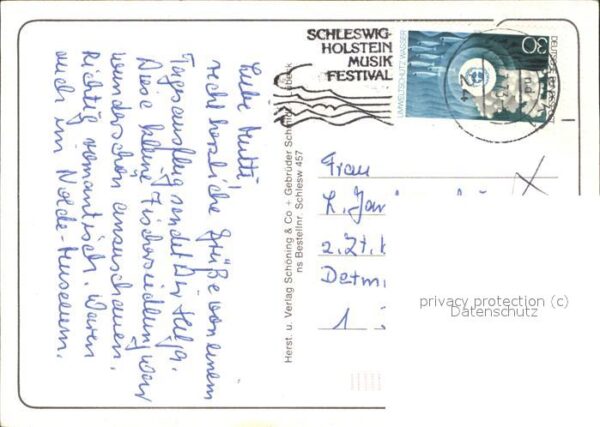 Liebe Mutti,
recht herzliche Grüße von einem
Tagesausflug sendet Dir Helga.
Diese kleine Fischersiedlung war
wunderschön anzuschauen.
Richtig romantisch. Waren
auch im Nolde-Museum.
Herst. u. Verlag Schöning & Co + Gebrüder Schmidt
ns Bestellnr. Schlesw 457
SCHLESWIG-
HOLSTEIN
MUSIK
FESTIVAL
UMWELTSCHUTZ WASSER
30
DEUTSCHE BUNDESPOST
Frau
z. Zt.
Detm
1
privacy protection (c)
Datenschutz